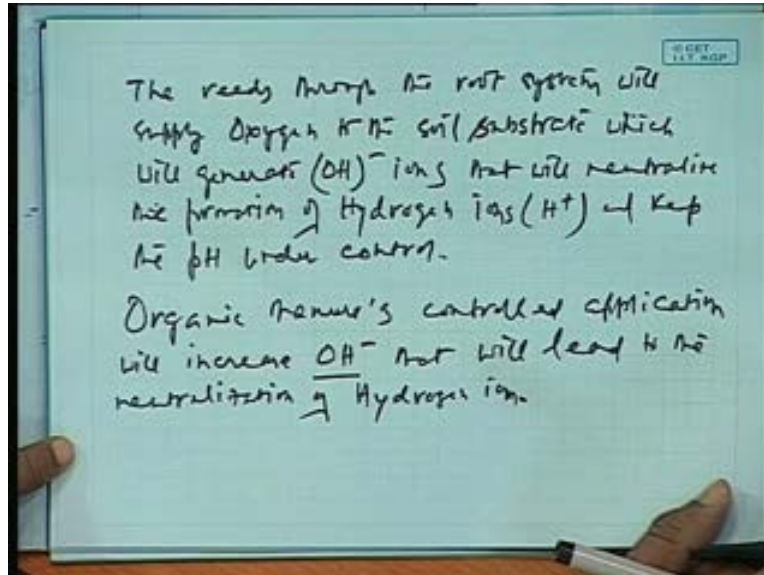 © CET
I.I.T. KGP
The reeds through the root system will
supply Oxygen to the soil substrate which
will generate (OH)⁻ ions that will neutralize
the formation of Hydrogen ions (H⁺) and keep
the pH under control.
Organic manure's controlled application
will increase OH⁻ that will lead to the
neutralization of Hydrogen ion.